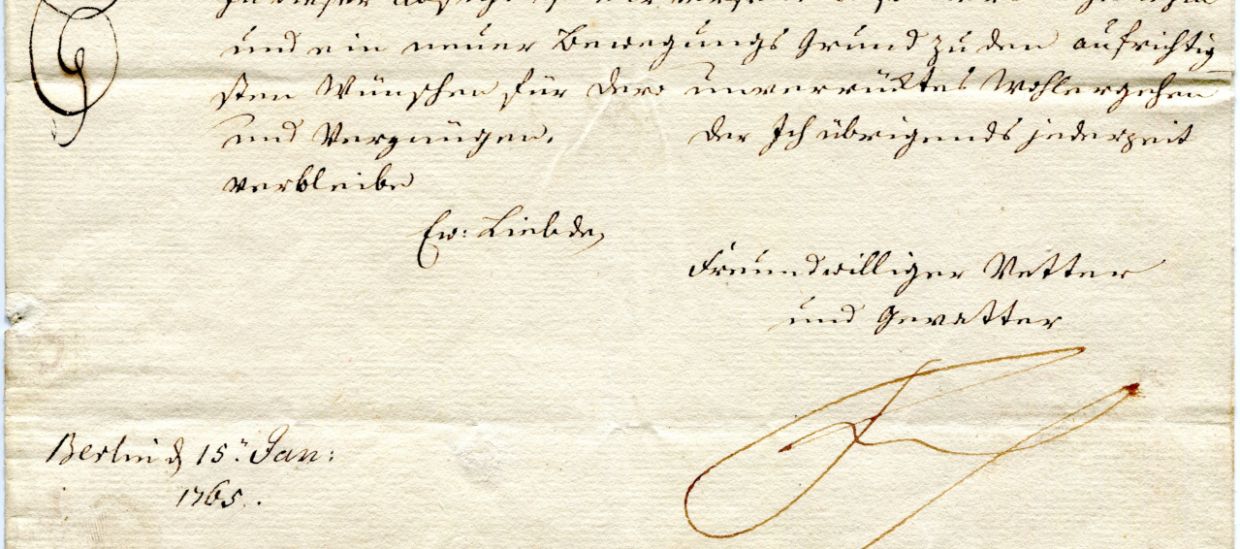 und ein neuer Bewegungs Grund zu den aufrichtig
sten Wünschen für Dero unverrücktes Wohlergehen
und Vergnügen. Der Ich übrigends jederzeit
verbleibe
Ew: Liebde,
Freundwilliger Vetter
und Gevatter
Berlin d 15t. Jan:
1765.